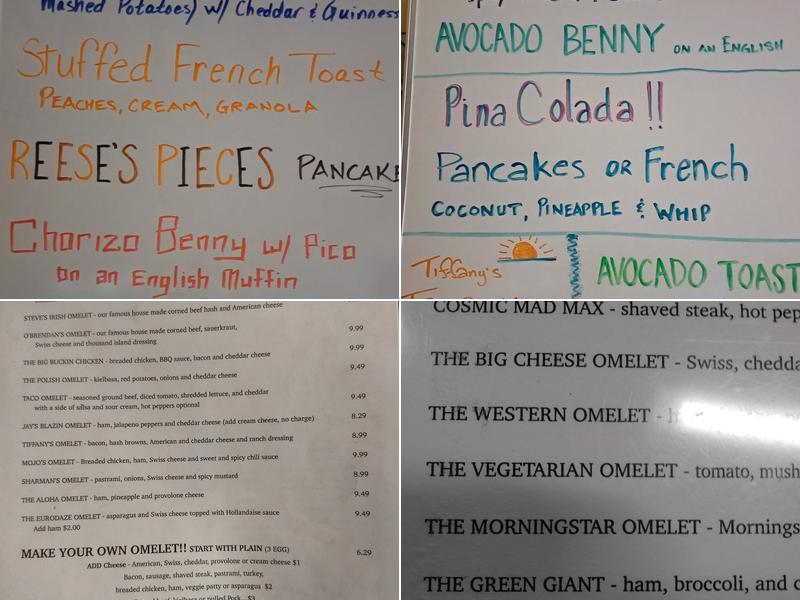 Mashed Potatoes) w/ Cheddar & Guinness
Stuffed French Toast
PEACHES, CREAM, GRANOLA
REESE'S PIECES PANCAKE
Chorizo Benny w/ Pico
on an English Muffin
AVOCADO BENNY ON AN ENGLISH
Pina Colada!!
Pancakes OR French
COCONUT, PINEAPPLE & WHIP
Tiffany's
AVOCADO TOAST
STEVE'S IRISH OMELET - our famous house made corned beef hash and American cheese
O'BRENDAN'S OMELET - our famous house made corned beef, sauerkraut, 9.99
Swiss cheese and thousand island dressing
9.99
THE BIG BUCKIN CHICKEN - breaded chicken, BBQ sauce, bacon and cheddar cheese
9.49
THE POLISH OMELET - kielbasa, red potatoes, onions and cheddar cheese
TACO OMELET - seasoned ground beef, diced tomato, shredded lettuce, and cheddar 9.49
with a side of salsa and sour cream, hot peppers optional
JAY'S BLAZIN OMELET - ham, jalapeno peppers and cheddar cheese (add cream cheese, no charge) 8.29
TIFFANY'S OMELET - bacon, hash browns, American and cheddar cheese and ranch dressing 8.99
MOJO'S OMELET - Breaded chicken, ham, Swiss cheese and sweet and spicy chili sauce 9.99
SHARMAN'S OMELET - pastrami, onions, Swiss cheese and spicy mustard 8.99
THE ALOHA OMELET - ham, pineapple and provolone cheese 9.49
THE EURODAZE OMELET - asparagus and Swiss cheese topped with Hollandaise sauce 9.49
Add ham $2.00
MAKE YOUR OWN OMELET!! START WITH PLAIN (3 EGG) 6.29
ADD Cheese - American, Swiss, cheddar, provolone or cream cheese $1
Bacon, sausage, shaved steak, pastrami, turkey,
breaded chicken, ham, veggie patty or asparagus $2
kielbasa or pulled Pork $3
COSMIC MAD MAX - shaved steak, hot pep
THE BIG CHEESE OMELET - Swiss, chedda
THE WESTERN OMELET - h
THE VEGETARIAN OMELET - tomato, mush
THE MORNINGSTAR OMELET - Mornings
THE GREEN GIANT - ham, broccoli, and c